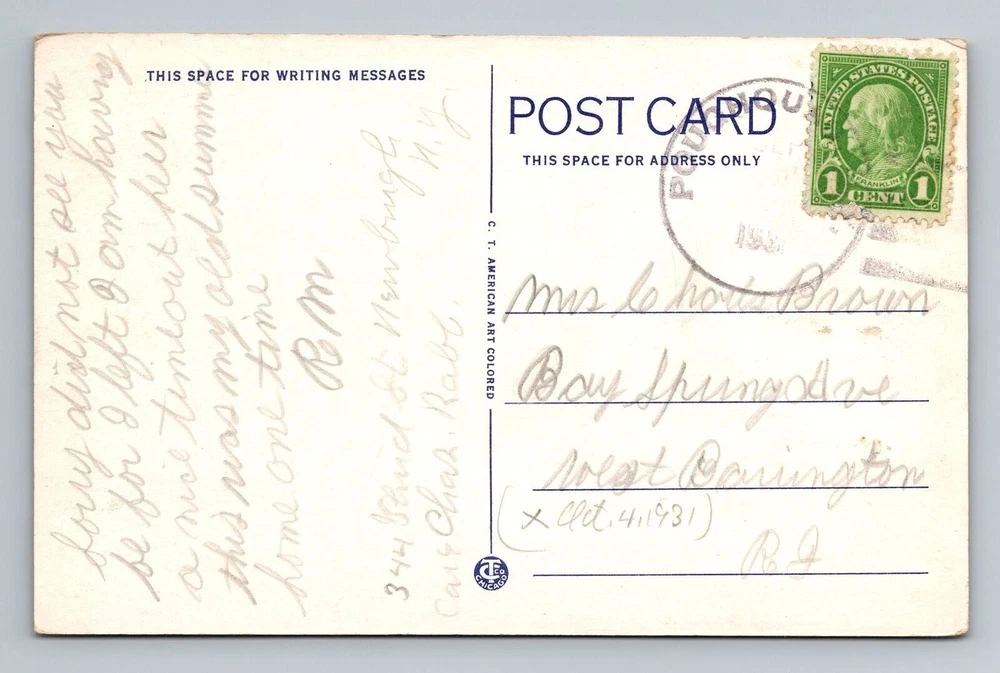 THIS SPACE FOR WRITING MESSAGES
sory did not see you
be for I left I am having
a nice time out her
this was my old summer
home one time
R M
344 St Newburgh
N. Y.
Care Chas. Rabl.
C. T. AMERICAN ART COLORED
CT CO
CHICAGO
POST CARD
THIS SPACE FOR ADDRESS ONLY
POUGHQU
SEP
193
UNITED STATES POSTAGE
FRANKLIN
1 CENT 1
Mrs Brown
Bay Spring Ave
West Barington
(x Oct. 4, 1931)
R I